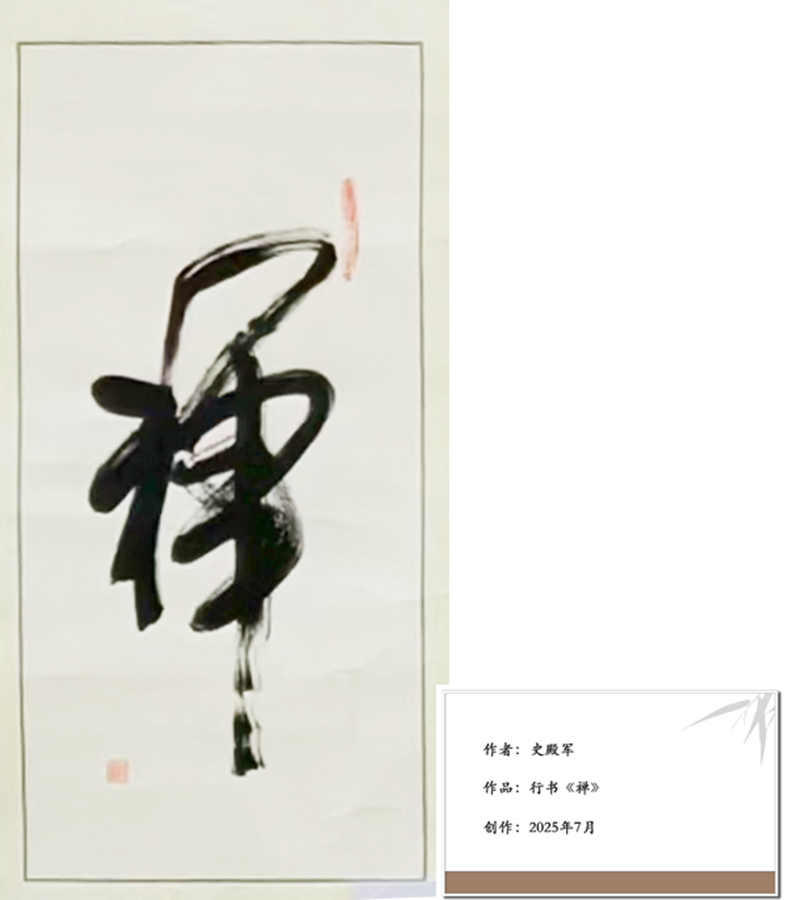 禅
作者：史殿军
作品：行书《禅》
创作：2025年7月